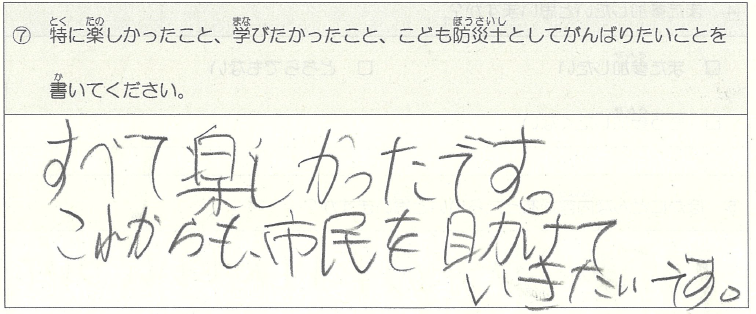 ⑦ 特に楽しかったこと、学びたかったこと、こども防災士としてがんばりたいことを
書いてください。
すべて楽しかったです。
これからも、市民を助けて
いきたいです。